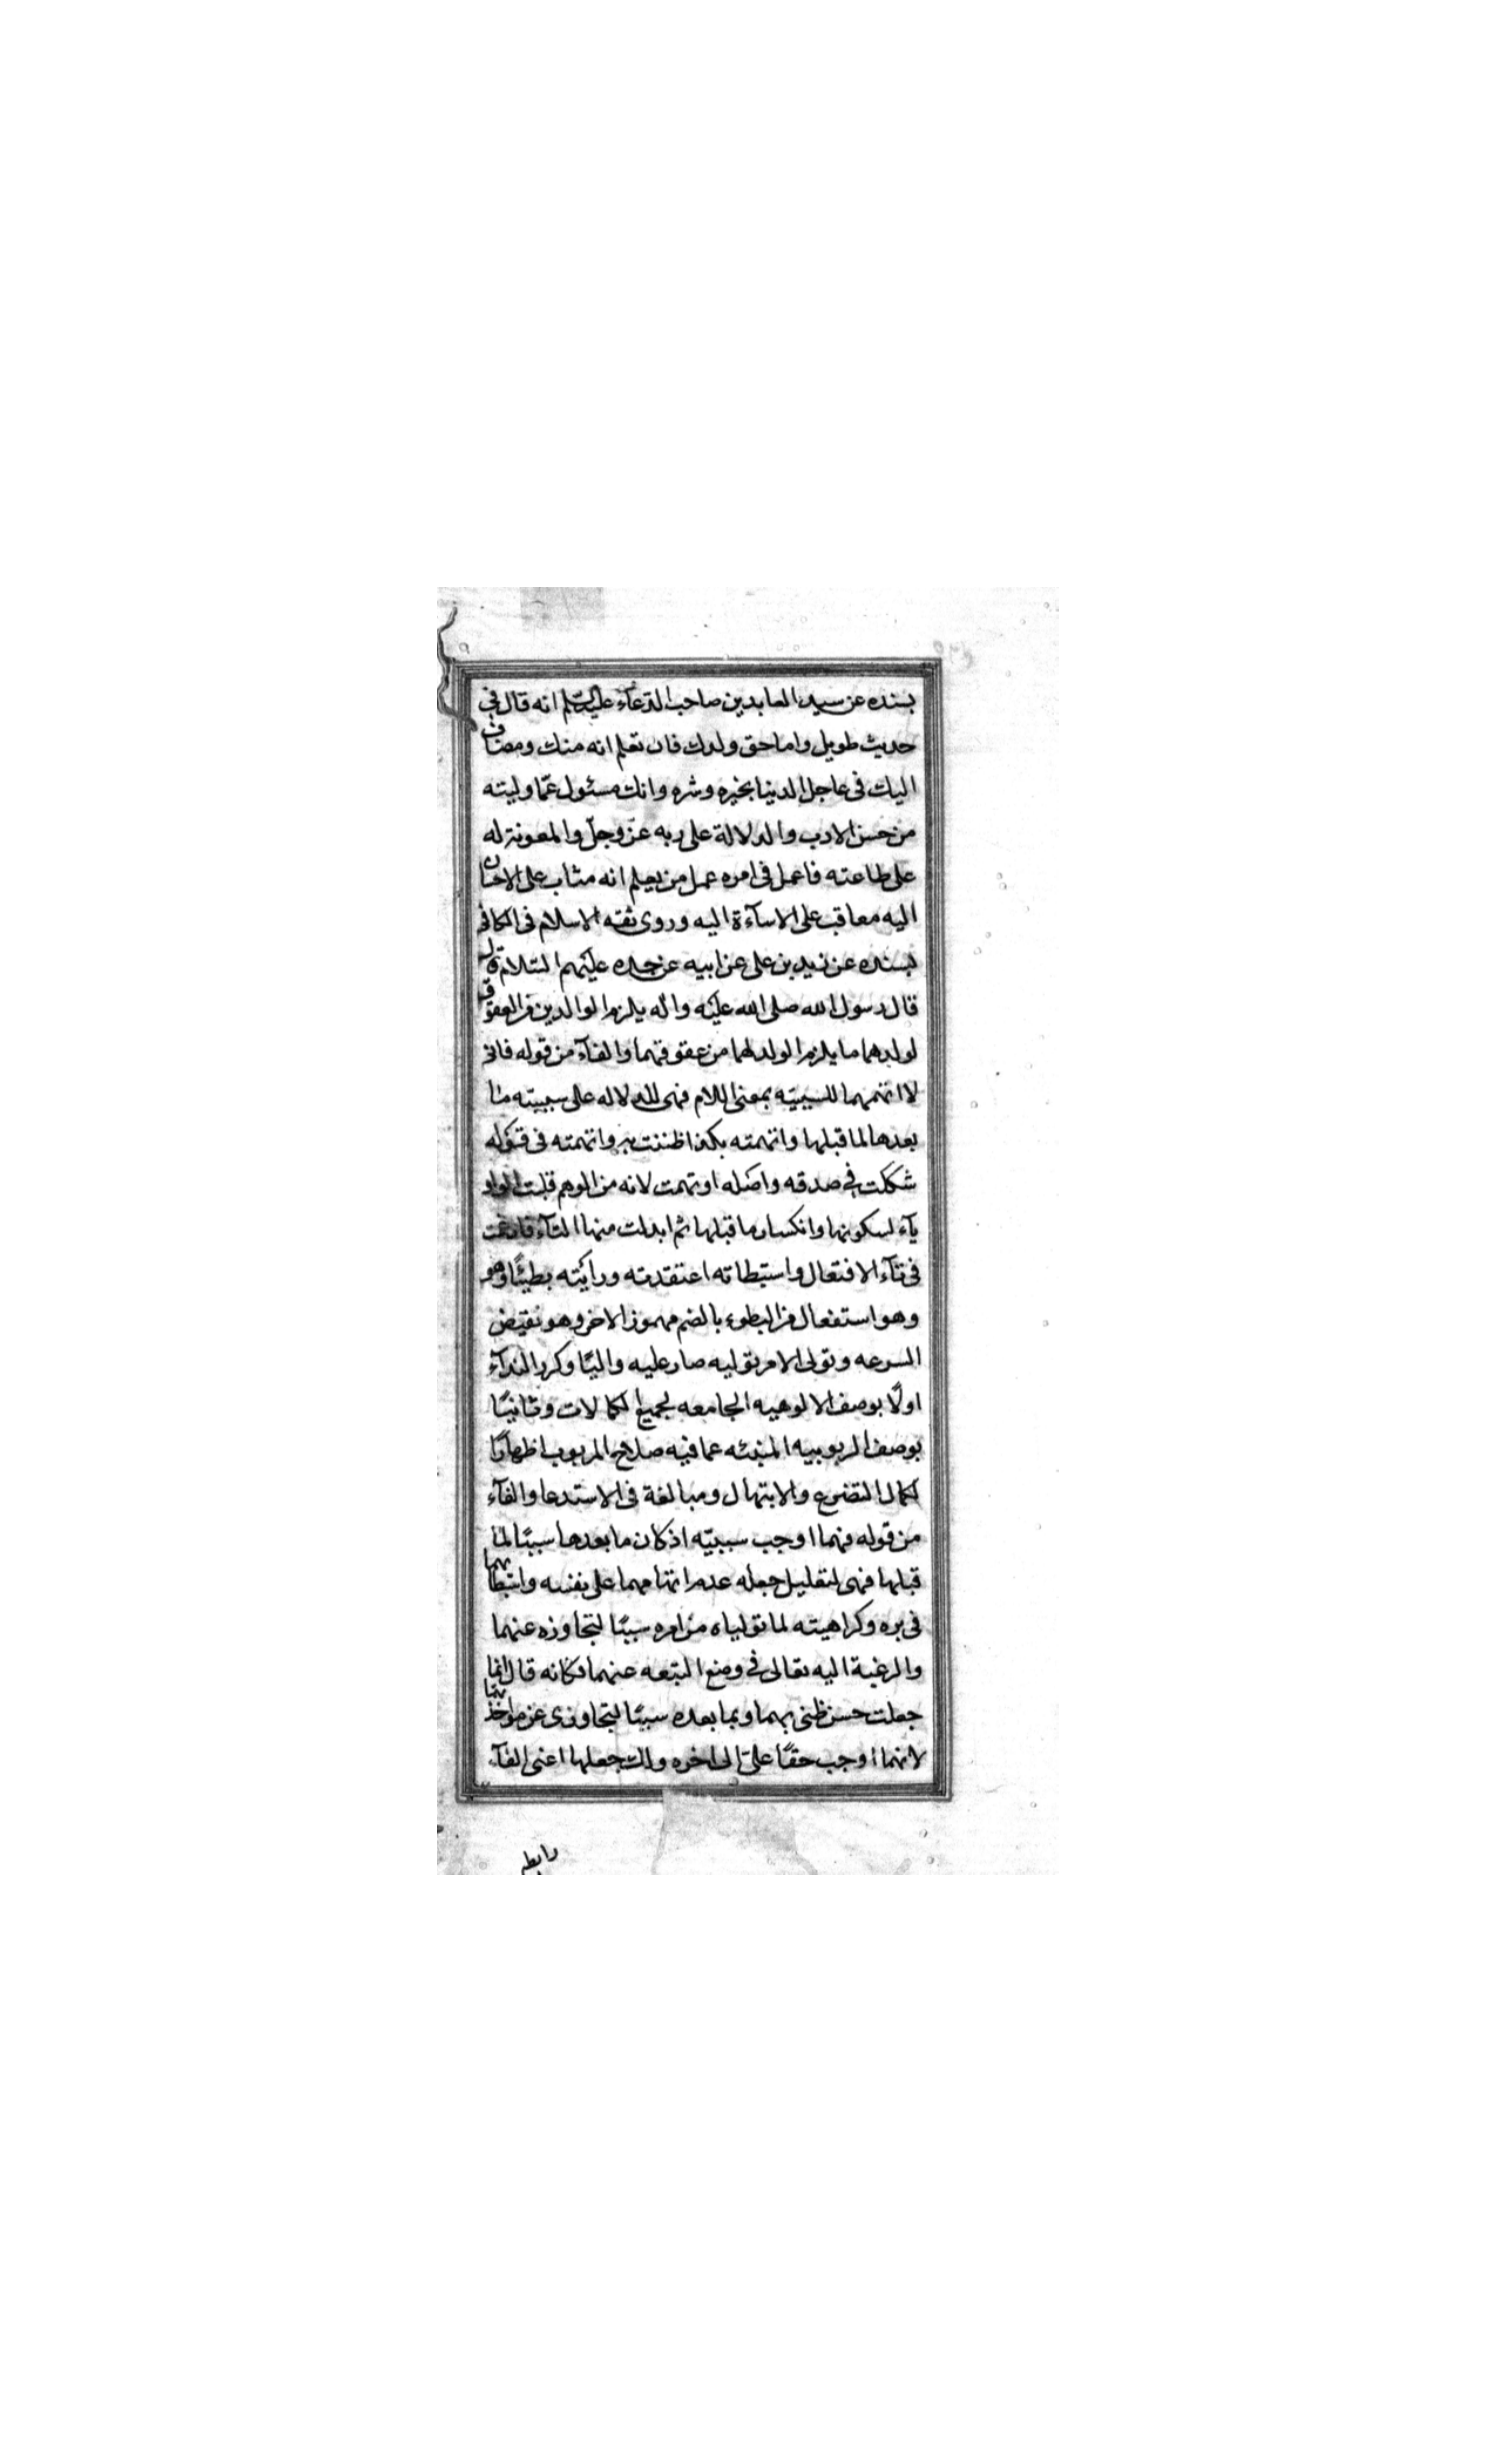 بسنده عن سيد العابدين صاحب الدعآء عليه السّلم انه قال في
حديث طويل واما حق ولدك فان تعلم انه منك ومضاف
اليك فى عاجل الدينا بخيره وشره وانك مسئول عمّا وليته
من حسن الادب والدلالة على ربه عزّ وجلّ والمعونة له
على طاعته فاعمل فى امره عمل من يعلم انه مثاب على الاحسان
اليه معاقب على الاسآءة اليه وروى ثقه الاسلام فى الكافى
بسنده عن زيد بن على عن ابيه عن جده عليهم السّلام قال
قال رسول الله صلى الله عليه واله يلزم الوالدين من العقوق
لولدهما ما يلزم الولد لهما من عقوقهما والفآء من قوله فانى
لا اتهمهما للسببيّه بمعنى اللام فهى للدلاله على سببيته ما
بعدها لما قبلها واتهمته بكذا ظننت به واتهمته فى قوله
شككت في صدقه واصله اوتهمت لانه من الوهم قلبت الواو
يآء لسكونها وانكسار ما قبلها ثم ابدلت منها التآء فادغمت
فى تآء الافتعال واستبطاته اعتقدته ورايته بطيئًا وهو
وهو استفعال من البطوء بالضم مهموز الاخر وهو نقيض
السرعه وتولى الامر بتوليه صار عليه واليًا وكرر الندآء
اولًا بوصف الالوهيه الجامعه لجميع الكمالات وثانيًا
بوصف الربوبيه المنبئه عما فيه صلاح المربوب اظهارًا
لكمال التضرع والابتهال ومبالغة فى الاستدعا والفآء
من قوله فهما اوجب سببيّه اذ كان ما بعدها سببًا لما
قبلها فهى لتعليل جعله عدم اتهامهما على نفسه واستبطائهما
فى بره وكراهيته لما تولياه من امره سببًا لتجاوزه عنهما
والرغبة اليه تعالى في وضع التبعه عنهما فكانه قال انما
جعلت حسن ظنى بهما وبما بعده سببًا لتجاوزى عن مواخذتهما
لانهما اوجب حقًا علىّ الى اخره ولك جعلها اعنى الفآء
رابطه